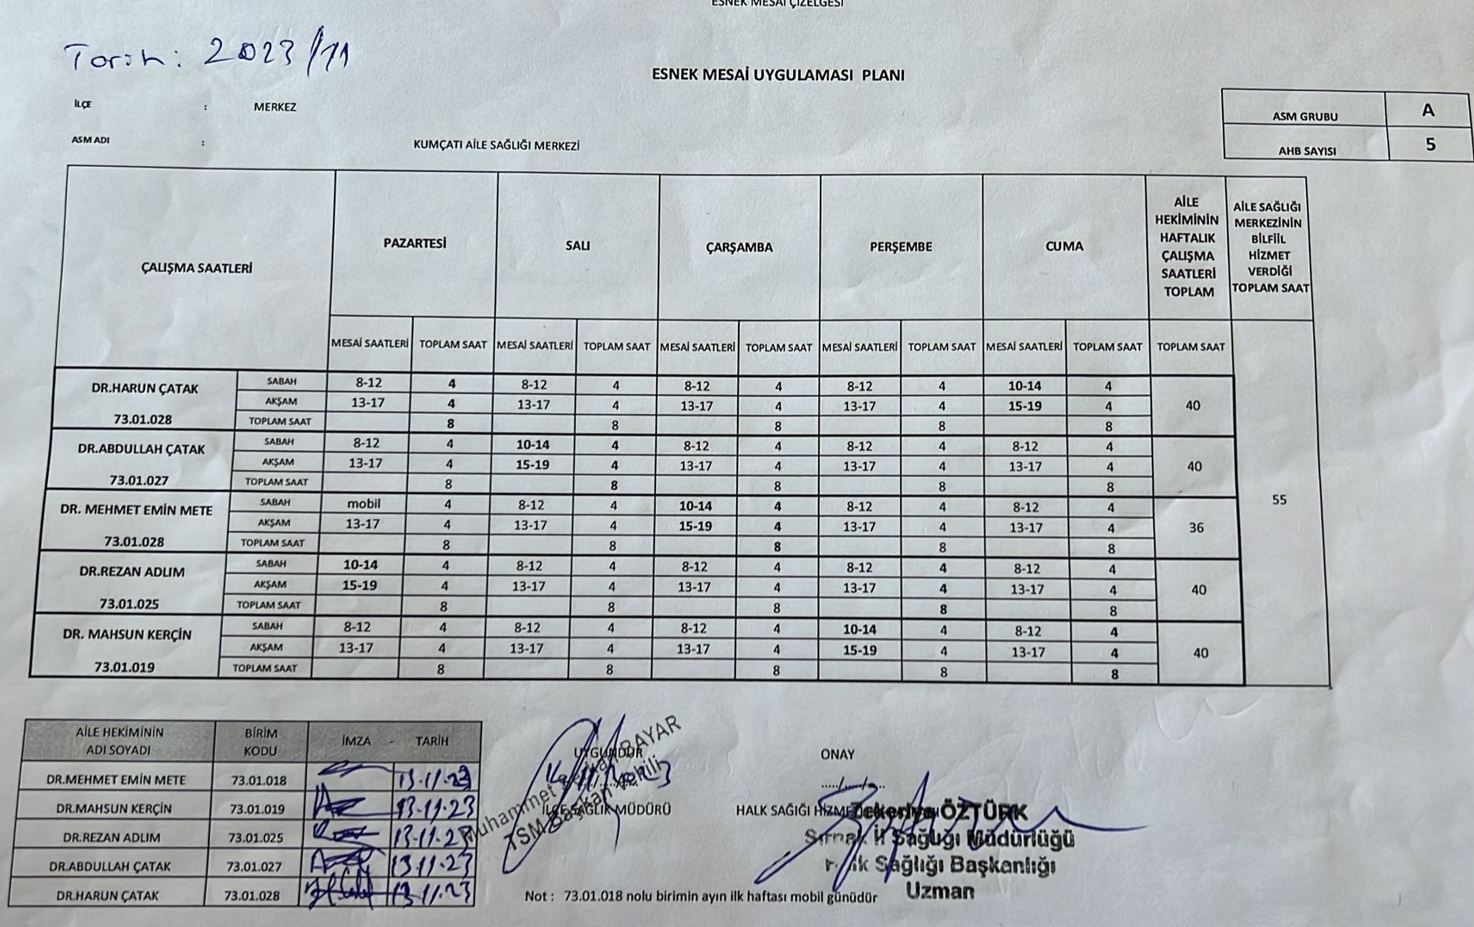 ESNEK MESAİ ÇİZELGESİ
Tarih: 2023/11
ESNEK MESAİ UYGULAMASI PLANI
İLÇE : MERKEZ
ASM ADI : KUMÇATI AİLE SAĞLIĞI MERKEZİ
ASM GRUBU A
AHB SAYISI 5
ÇALIŞMA SAATLERİ PAZARTESİ SALI ÇARŞAMBA PERŞEMBE CUMA AİLE HEKİMİNİN HAFTALIK ÇALIŞMA SAATLERİ TOPLAM AİLE SAĞLIĞI MERKEZİNİN BİLFİİL HİZMET VERDİĞİ TOPLAM SAAT
MESAİ SAATLERİ TOPLAM SAAT MESAİ SAATLERİ TOPLAM SAAT MESAİ SAATLERİ TOPLAM SAAT MESAİ SAATLERİ TOPLAM SAAT MESAİ SAATLERİ TOPLAM SAAT TOPLAM SAAT
DR.HARUN ÇATAK SABAH 8-12 4 8-12 4 8-12 4 8-12 4 10-14 4
AKŞAM 13-17 4 13-17 4 13-17 4 13-17 4 15-19 4 40
73.01.028 TOPLAM SAAT 8 8 8 8 8
DR.ABDULLAH ÇATAK SABAH 8-12 4 10-14 4 8-12 4 8-12 4 8-12 4
AKŞAM 13-17 4 15-19 4 13-17 4 13-17 4 13-17 4 40
73.01.027 TOPLAM SAAT 8 8 8 8 8
DR. MEHMET EMİN METE SABAH mobil 4 8-12 4 10-14 4 8-12 4 8-12 4 55
AKŞAM 13-17 4 13-17 4 15-19 4 13-17 4 13-17 4 36
73.01.028 TOPLAM SAAT 8 8 8 8 8
DR.REZAN ADLIM SABAH 10-14 4 8-12 4 8-12 4 8-12 4 8-12 4
AKŞAM 15-19 4 13-17 4 13-17 4 13-17 4 13-17 4 40
73.01.025 TOPLAM SAAT 8 8 8 8 8
DR. MAHSUN KERÇİN SABAH 8-12 4 8-12 4 8-12 4 10-14 4 8-12 4
AKŞAM 13-17 4 13-17 4 13-17 4 15-19 4 13-17 4 40
73.01.019 TOPLAM SAAT 8 8 8 8 8
AİLE HEKİMİNİN ADI SOYADI BİRİM KODU İMZA - TARİH
DR.MEHMET EMİN METE 73.01.018 13.11.23
DR.MAHSUN KERÇİN 73.01.019 13.11.23
DR.REZAN ADLIM 73.01.025 13.11.23
DR.ABDULLAH ÇATAK 73.01.027 13.11.23
DR.HARUN ÇATAK 73.01.028 13.11.23
UYGUNDUR
İLÇE SAĞLIK MÜDÜRÜ
Muhammet BAYAR
TSM Başkan Vekili
ONAY
HALK SAĞIĞI
Zekeriya ÖZTÜRK
Şırnak İl Sağlığı Müdürlüğü
Sağlığı Başkanlığı
Uzman
Not : 73.01.018 nolu birimin ayın ilk haftası mobil günüdür